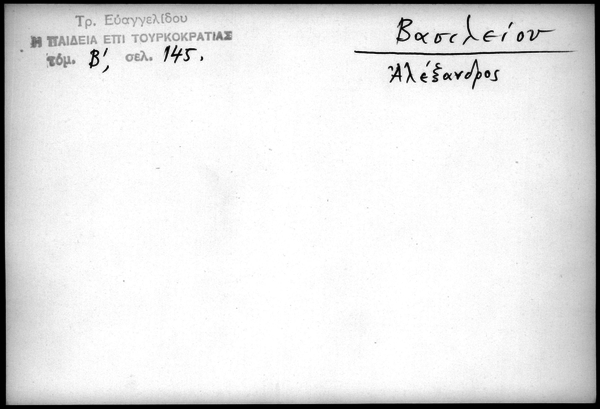 Τρ. Εὐαγγελίδου
Η ΠΑΙΔΕΙΑ ΕΠΙ ΤΟΥΡΚΟΚΡΑΤΙΑΣ
τόμ. Β', σελ. 145.
Βασιλείου
Ἀλέξανδρος